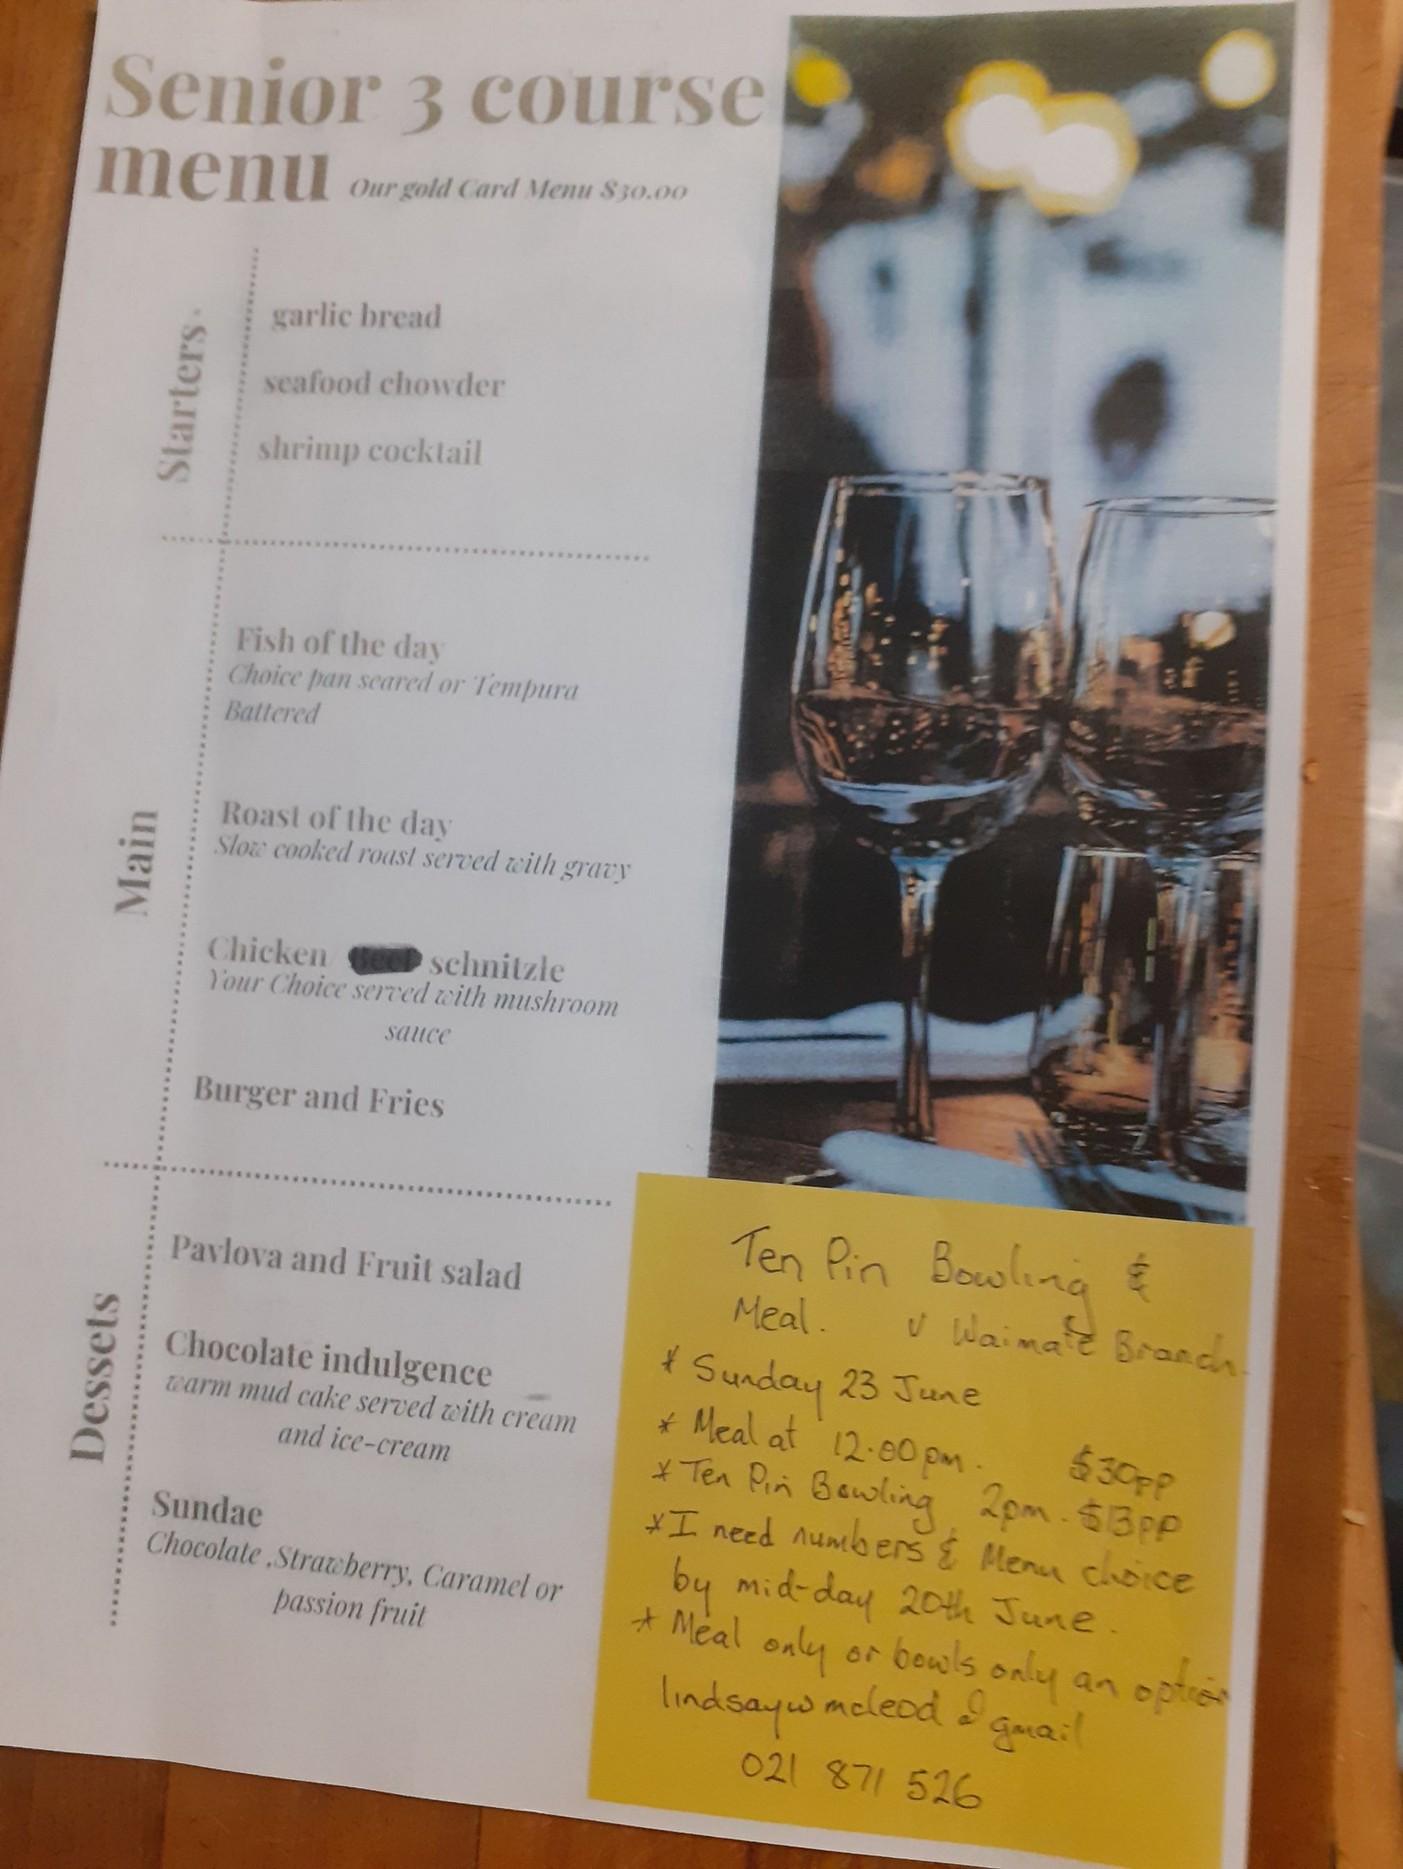 Senior 3 course
menu Our gold Card Menu $30.00
Starters
garlic bread
seafood chowder
shrimp cocktail
Main
Fish of the day
Choice pan seared or Tempura
Battered
Roast of the day
Slow cooked roast served with gravy
Chicken schnitzle
Your Choice served with mushroom
sauce
Burger and Fries
Dessets
Pavlova and Fruit salad
Chocolate indulgence
warm mud cake served with cream
and ice-cream
Sundae
Chocolate ,Strawberry, Caramel or
passion fruit
Ten Pin Bowling &
Meal. v Waimate Branch.
* Sunday 23 June
* Meal at 12.00pm. $30pp
* Ten Pin Bowling 2pm. $13pp
* I need numbers & Menu choice
by mid-day 20th June.
* Meal only or bowls only an option
lindsaywmcleod @ gmail
021 871 526